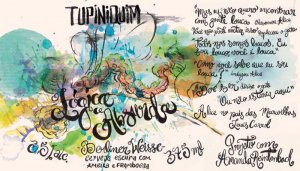 TUPINIQUIM
Lógica
do Absurdo
Berliner Weisse
cerveja escura com
ameixa e framboesa
"Mas eu não quero encontrar
com gente louca" observou Alice
"Você não pode evitar isso" replicou o gato
"Todos nós somos loucos. Eu
sou louco, você é louca"
"Como você sabe que eu sou
louca?" indagou Alice
"Deve ser" disse o gato
"Ou não estaria aqui"
Alice no país das Maravilhas
Lewis Carrol
Projeto com